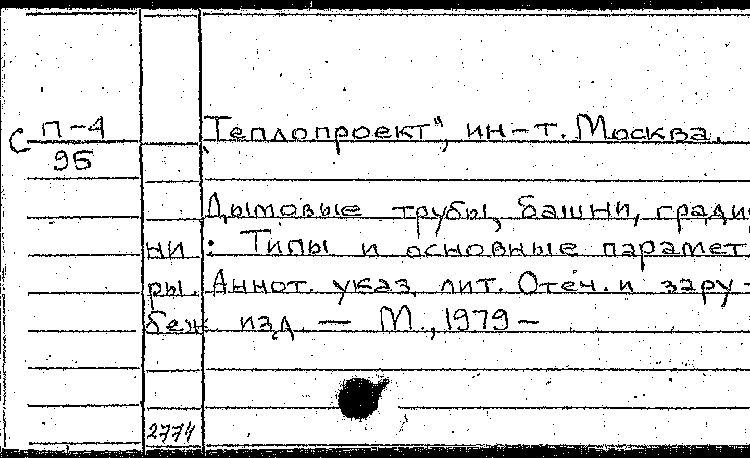 С П-4
95
"Теплопроект", ин-т. Москва.
Дымовые трубы, башни, гради
ни: Типы и основные парамет
ры. Аннот. указ. лит. Отеч. и зару-
беж. изд. — М., 1979 –
2774